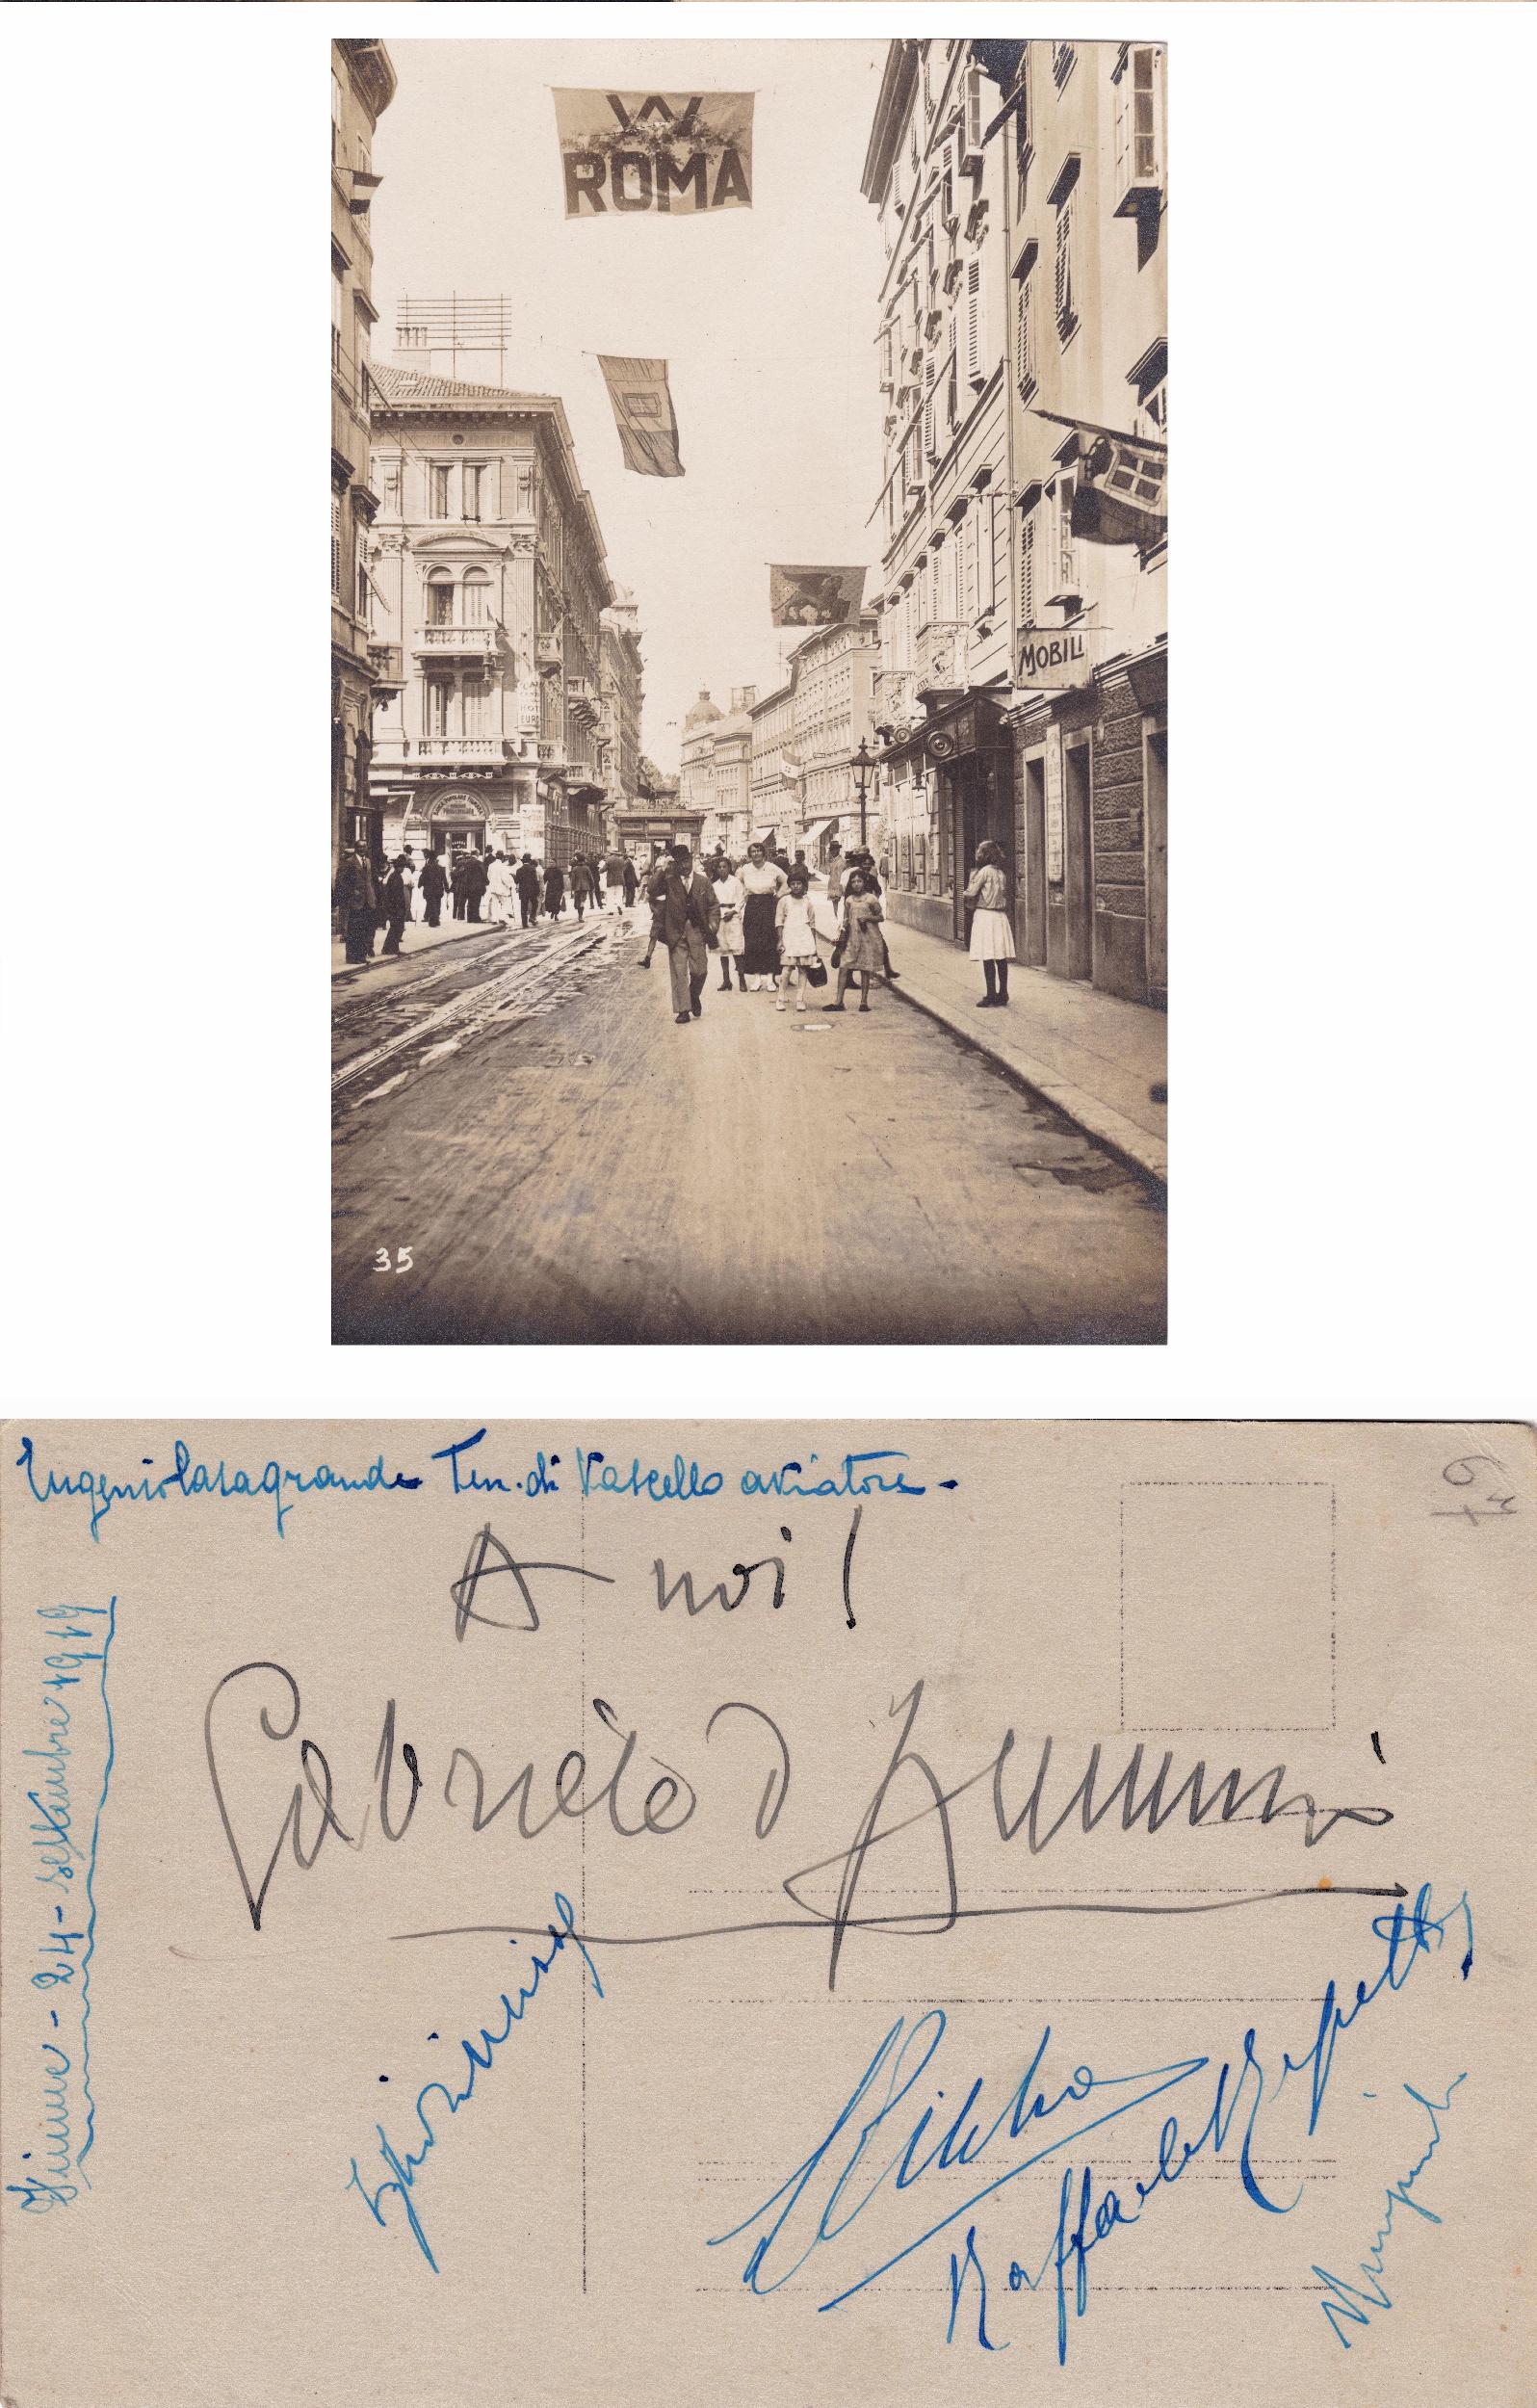 W
ROMA
MOBILI
35
Eugenio Casagrande Ten. di Vascello aviatore -
A noi!
Gabriele d'Annunzio
Fiume - 24 - settembre 1919
Raffaele Repetto
67